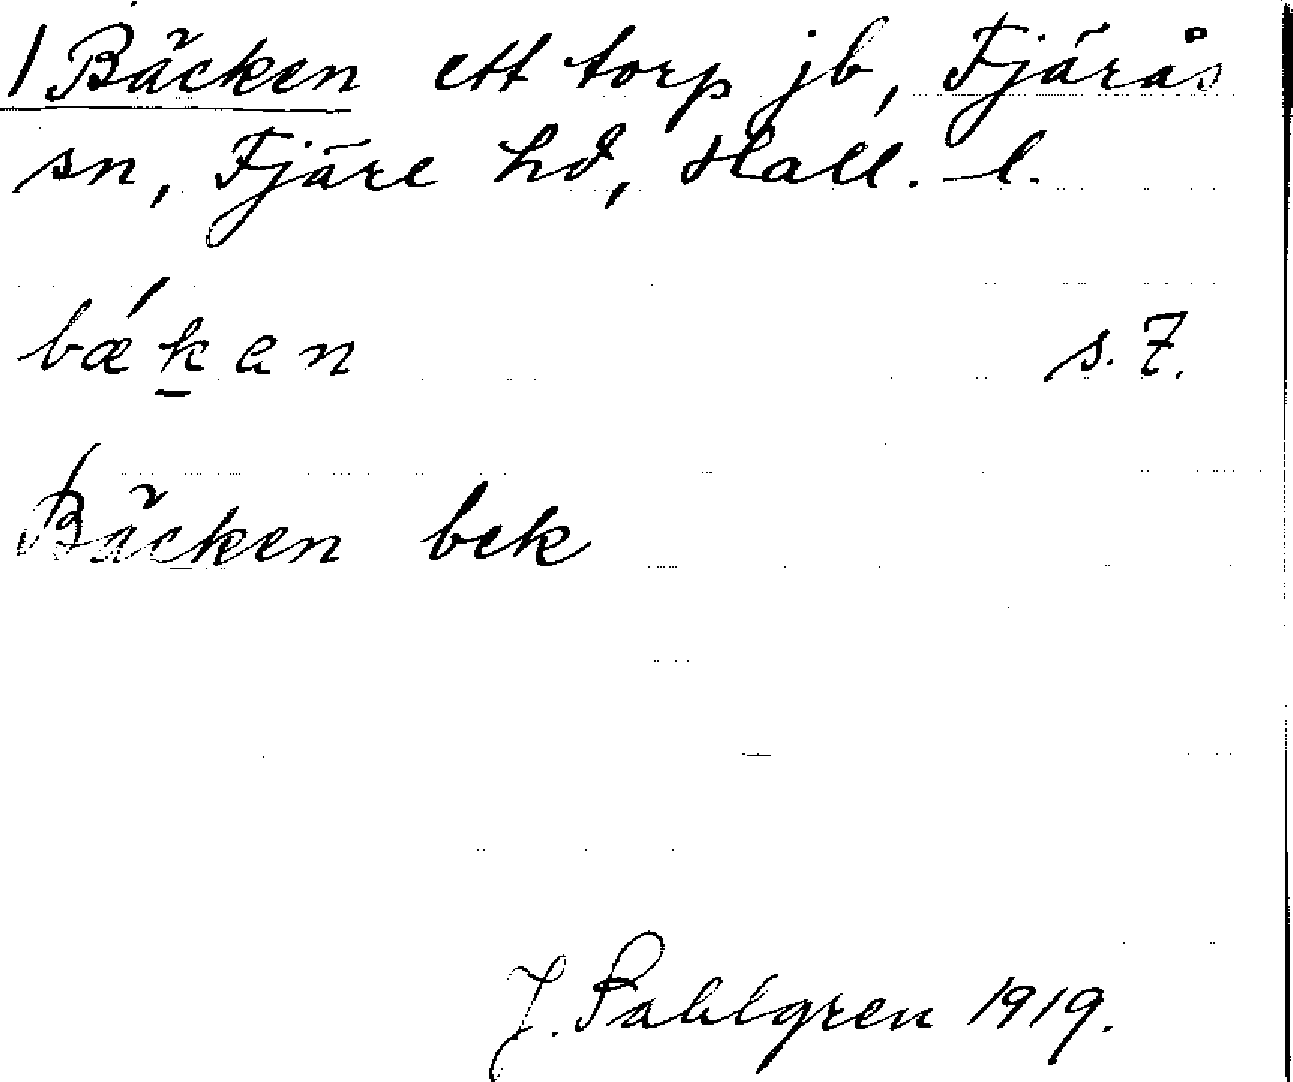 / Bäcken ett torp jb, Fjärås
sn, Fjäre hd, Hall. l.
bǽk̲an s. 7.
Bäcken bek
J. Sahlgren 1919.